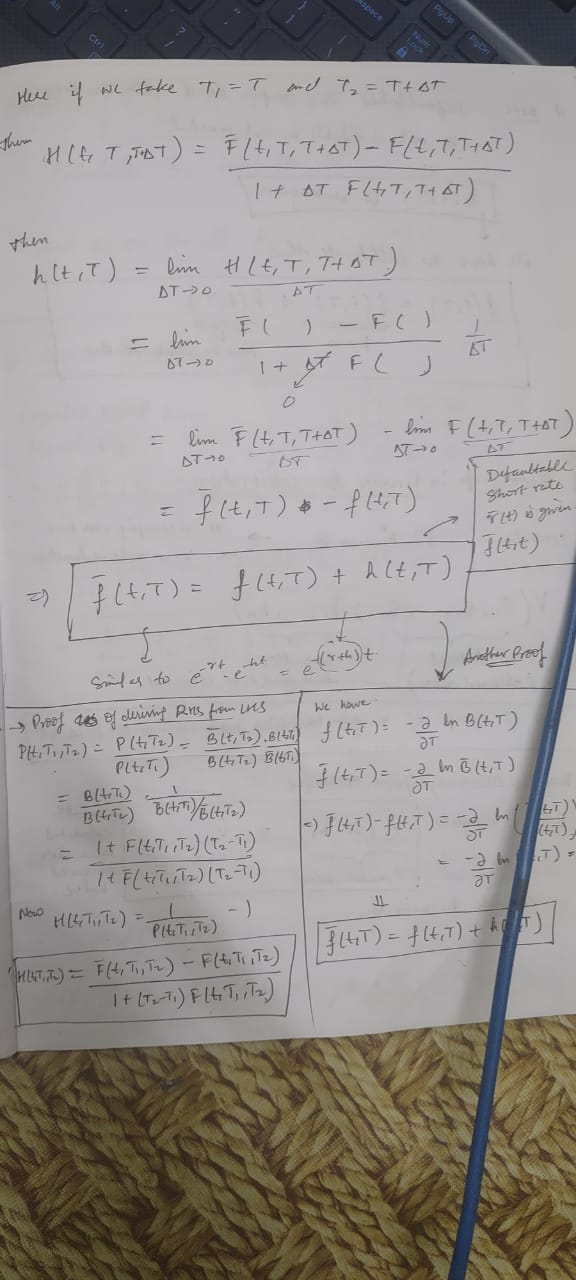 Alt
Ctrl
?
/
kspace
PgUp
Num
Lock
PgDn
Here if we take T₁ = T and T₂ = T+ΔT
then H(t, T, T+ΔT) = F̄(t,T,T+ΔT) − F(t,T,T+ΔT)
1 + ΔT F(t,T,T+ΔT)
then
h(t,T) = lim H(t,T,T+ΔT)
ΔT→0 ΔT
= lim F̄( ) − F( ) 1
ΔT→0 1 + ΔT F( ) ΔT
0
= lim F̄(t,T,T+ΔT) − lim F(t,T,T+ΔT)
ΔT→0 ΔT ΔT→0 ΔT
= f̄(t,T) − f(t,T)
Defaultable
short rate
r̄(t) is given
f̄(t,t)
⇒ f̄(t,T) = f(t,T) + h(t,T)
Similar to e^{-rt} · e^{-ht} = e^{-(r+h)t}
Another Proof
→ Proof of deriving RHS from LHS
P(t,T₁,T₂) = P(t,T₂) = B̄(t,T₂) . B(t,T₁)
P(t,T₁) B(t,T₂) B̄(t,T₁)
= B(t,T₁) . 1
B(t,T₂) B̄(t,T₁)/B̄(t,T₂)
= 1 + F(t,T₁,T₂)(T₂−T₁)
1 + F̄(t,T₁,T₂)(T₂−T₁)
Now H(t,T₁,T₂) = 1 − 1
P(t,T₁,T₂)
H(t,T₁,T₂) = F̄(t,T₁,T₂) − F(t,T₁,T₂)
1 + (T₂−T₁) F(t,T₁,T₂)
we have
f(t,T) = −∂ ln B(t,T)
∂T
f̄(t,T) = −∂ ln B̄(t,T)
∂T
⇒ f̄(t,T) − f(t,T) = −∂ ln ( (t,T)
∂T (t,T)
= −∂ ln ,T) =
∂T
⇓
f̄(t,T) = f(t,T) + h( ,T)